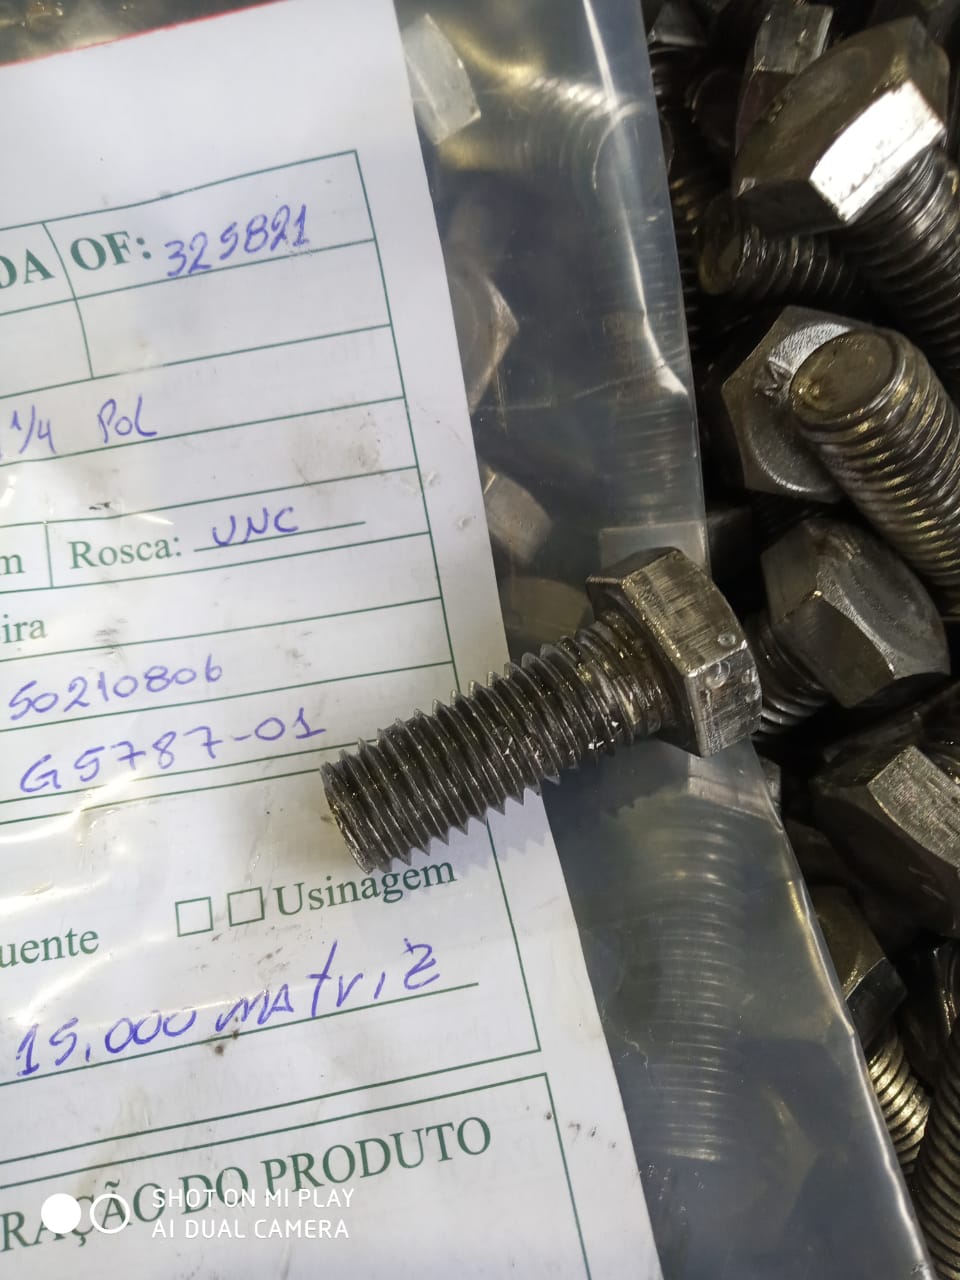 DA OF: 325821
1/4 POL
m Rosca: UNC
ira
50210806
G5787-01
uente Usinagem
15.000 matriz
RAÇÃO DO PRODUTO
M
SHOT ON MI PLAY
AI DUAL CAMERA